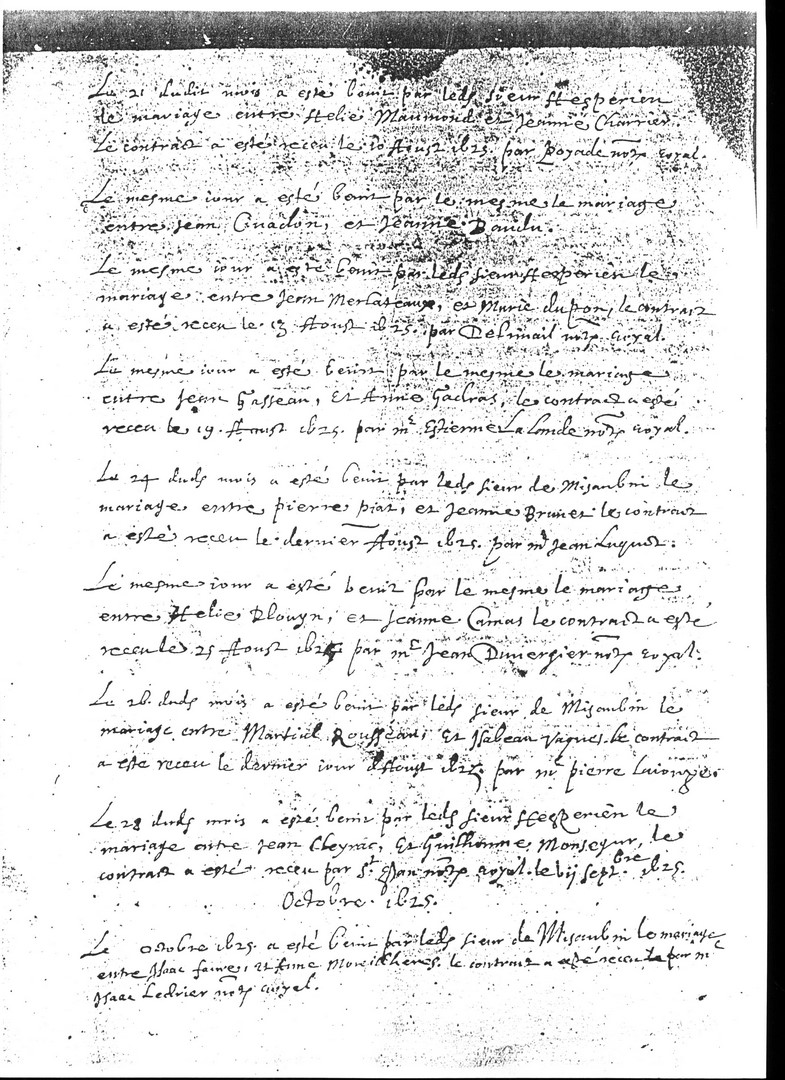 Le 21 dudit mois a esté benit par leds sieur Hesperien
le mariage entre Helie Maumond et Jeanne Charrier
Le contract a esté receu le 10 Aoust 1625. par Boyade notre royal.
Le mesme iour a esté benit par le mesme le mariage
entre Jean Guadon, et Jeanne Baudu.
Le mesme iour a esté benit par leds sieur Hesperien le
mariage entre Jean Merlateaux, et Marie dupon, le contract
a esté receu le 13 Aoust 1625. par Delimail notre royal.
Le mesme iour a esté benit par le mesme le mariage
entre Jean Gasseau, et Anne Gadras, le contract a esté
receu le 19. Aoust 1625. par mr Estienne La londe notre royal.
Le 24 duds mois a esté benit par leds sieur de Misaubin le
mariage entre pierre piat, et Jeanne Brunet le contract
a esté receu le dernier Aoust 1625. par mr Jean Luquot.
Le mesme iour a esté benit par le mesme le mariage
entre Helie Plouyn, et Jeanne Camas le contract a esté
receu le 25 Aoust 1625 par mr Jean Duvergier notre royal.
Le 26. duds mois a esté benit par leds sieur de Misaubin le
mariage entre Martial Rousseau, et Isabeau Vaques. le contract
a esté receu le dernier iour d'Aoust 1625. par mr pierre
Le 28 duds mois a esté benit par leds sieur Hesperien le
mariage entre Jean Cheyrac, et Guilhonne Monsegur, le
contract a esté receu par St notre royal. le vij septbre 1625.
Octobre. 1625.
Le octobre 1625. a esté benit par leds sieur de Misaubin le mariage
entre Isaac faure, et Anne le contract a esté receu par mr
Isaac Ledrier notre royal.